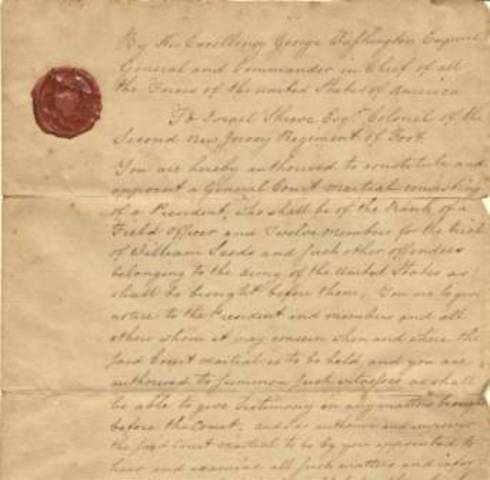 By His Excellency George Washington Esquire
General and Commander in Chief of all
the Forces of the United States of America
To Israel Shreve Esqr. Colonel of the
Second New Jersey Regiment of Foot.
You are hereby authorised to constitute and
appoint a General Court martial consisting
of a President, who shall be of the Rank of a
Field Officer and Twelve members for the trial
of William Seeds and such other offenders
belonging to the army of the United States as
shall be brought before them, You are to give
notice to the President and members and all
others whom it may concern when and where the
said Court martial is to be held, and you are
authorised to summon such witnesses as shall
be able to give Testimony in any matters brought
before the Court; and I do authorise and impower
the said Court martial to be by you appointed to
hear and examine all such matters and infor